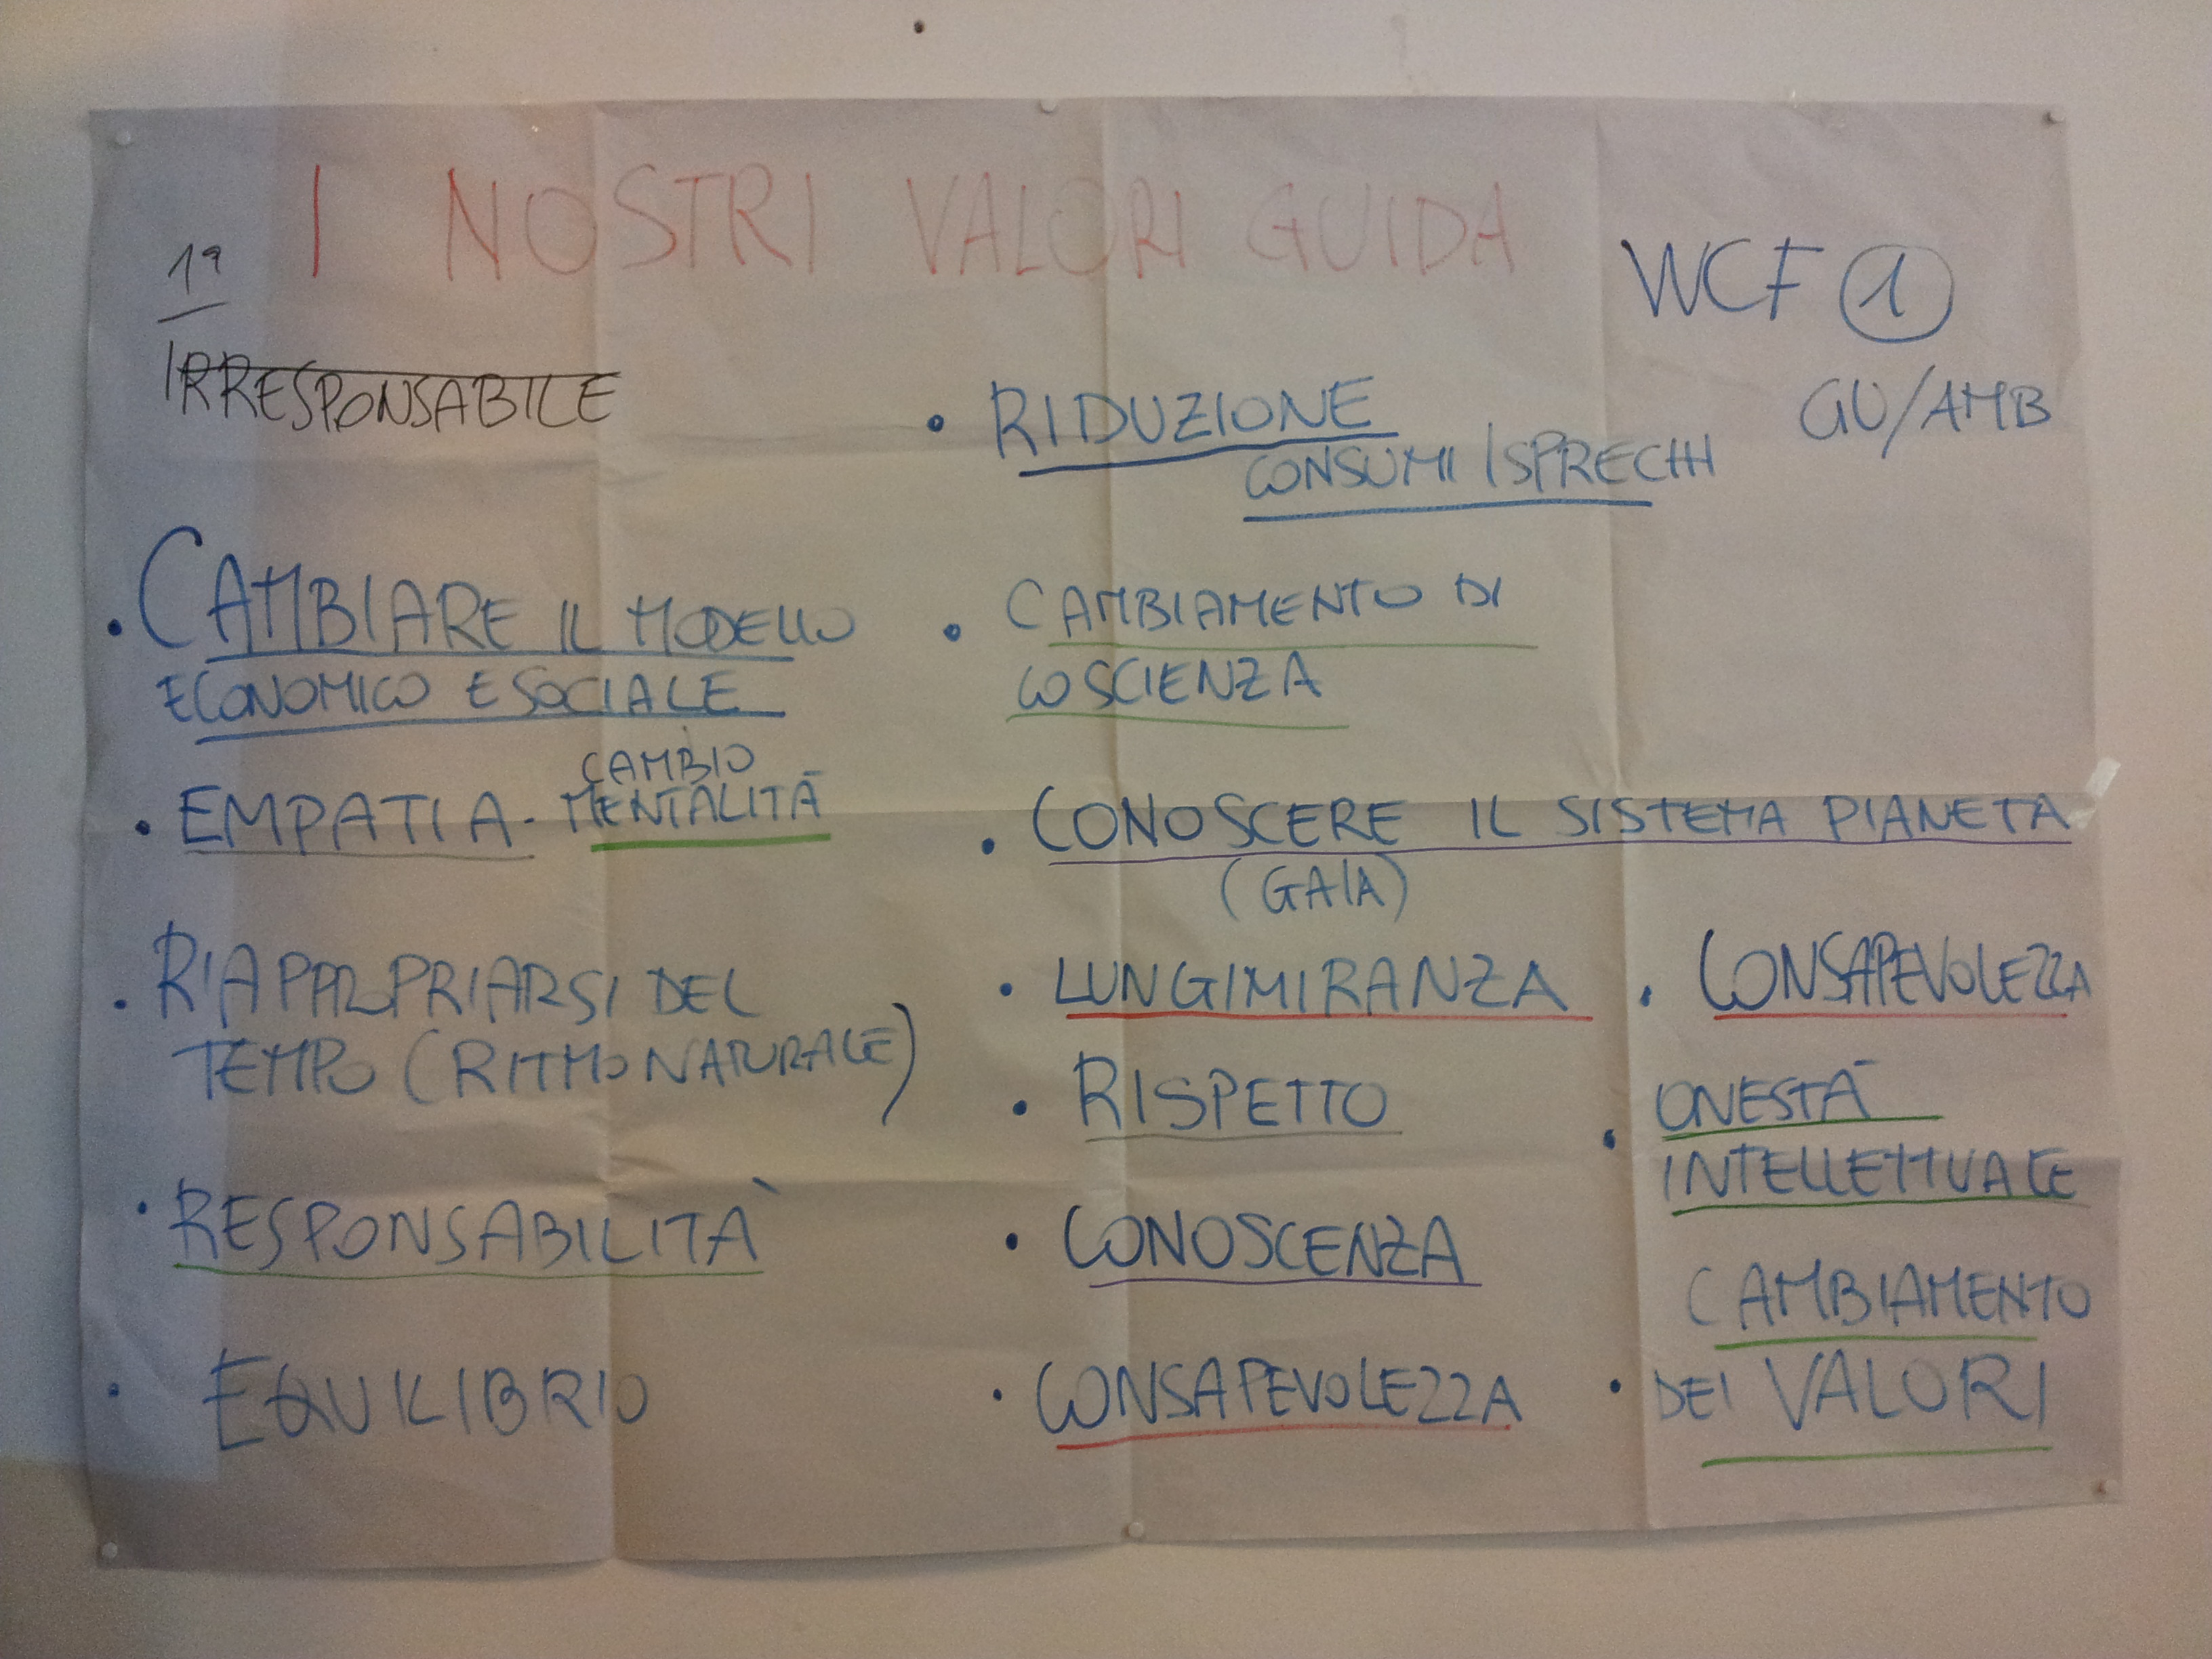 I NOSTRI VALORI GUIDA
1ª
IRRESPONSABILE
WCF 1
GU/AMB
• CAMBIARE IL MODELLO
ECONOMICO E SOCIALE
• EMPATIA - CAMBIO
MENTALITÀ
• RIAPPROPRIARSI DEL
TEMPO (RITMO NATURALE)
• RESPONSABILITÀ
• EQUILIBRIO
• RIDUZIONE
CONSUMI / SPRECHI
• CAMBIAMENTO DI
COSCIENZA
• CONOSCERE IL SISTEMA PIANETA
(GAIA)
• LUNGIMIRANZA
• RISPETTO
• CONOSCENZA
• CONSAPEVOLEZZA
• CONSAPEVOLEZZA
• ONESTÀ
INTELLETTUALE
CAMBIAMENTO
• DEI VALORI